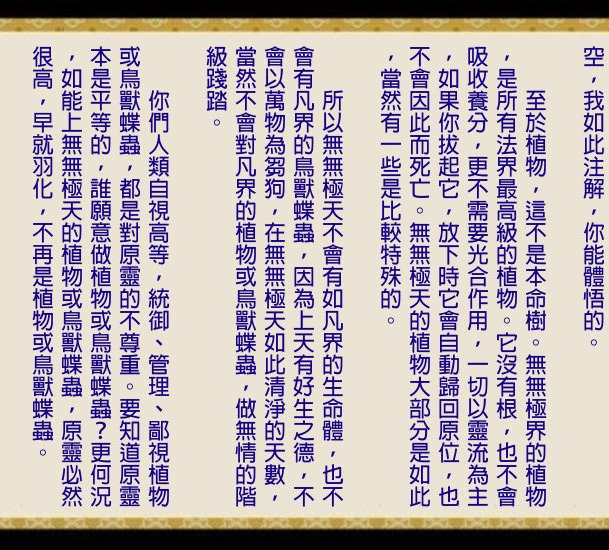 空，我如此注解，你能體悟的。
至於植物，這不是本命樹。無無極界的植物
，是所有法界最高級的植物。它沒有根，也不會
吸收養分，更不需要光合作用，一切以靈流為主
，如果你拔起它，放下時它會自動歸回原位，也
不會因此而死亡。無無極天的植物大部分是如此
，當然有一些是比較特殊的。
所以無無極天不會有如凡界的生命體，也不
會有凡界的鳥獸蝶蟲，因為上天有好生之德，不
會以萬物為芻狗，在無無極天如此清淨的天數，
當然不會對凡界的植物或鳥獸蝶蟲，做無情的階
級踐踏。
你們人類自視高等，統御、管理、鄙視植物
或鳥獸蝶蟲，都是對原靈的不尊重。要知道原靈
本是平等的，誰願意做植物或鳥獸蝶蟲？更何況
，如能上無無極天的植物或鳥獸蝶蟲，原靈必然
很高，早就羽化，不再是植物或鳥獸蝶蟲。